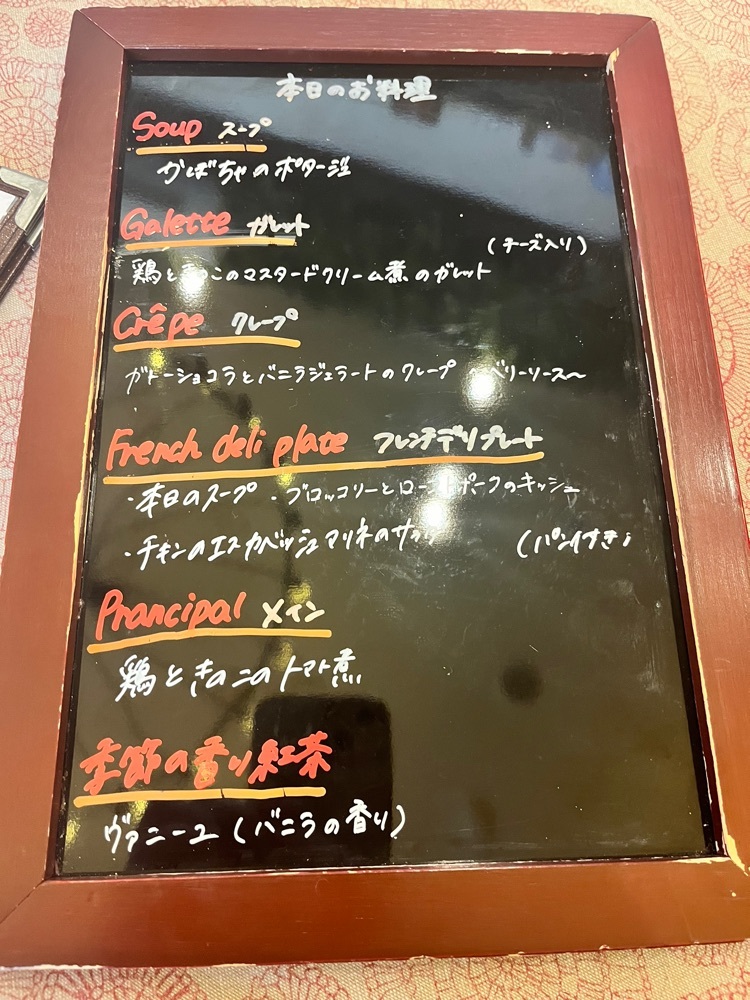 本日のお料理
Soup スープ
かぼちゃのポタージュ
Galette ガレット
(チーズ入り)
鶏ときのこのマスタードクリーム煮のガレット
Crêpe クレープ
ガトーショコラとバニラジェラートのクレープ ベリーソース〜
French deli plate フレンチデリプレート
・本日のスープ ・ブロッコリーとローストポークのキッシュ
・チキンのエスカベッシュマリネのサラダ (パン付き)
Prancipal メイン
鶏ときのこのトマト煮
季節の香り紅茶
ヴァニーユ (バニラの香り)